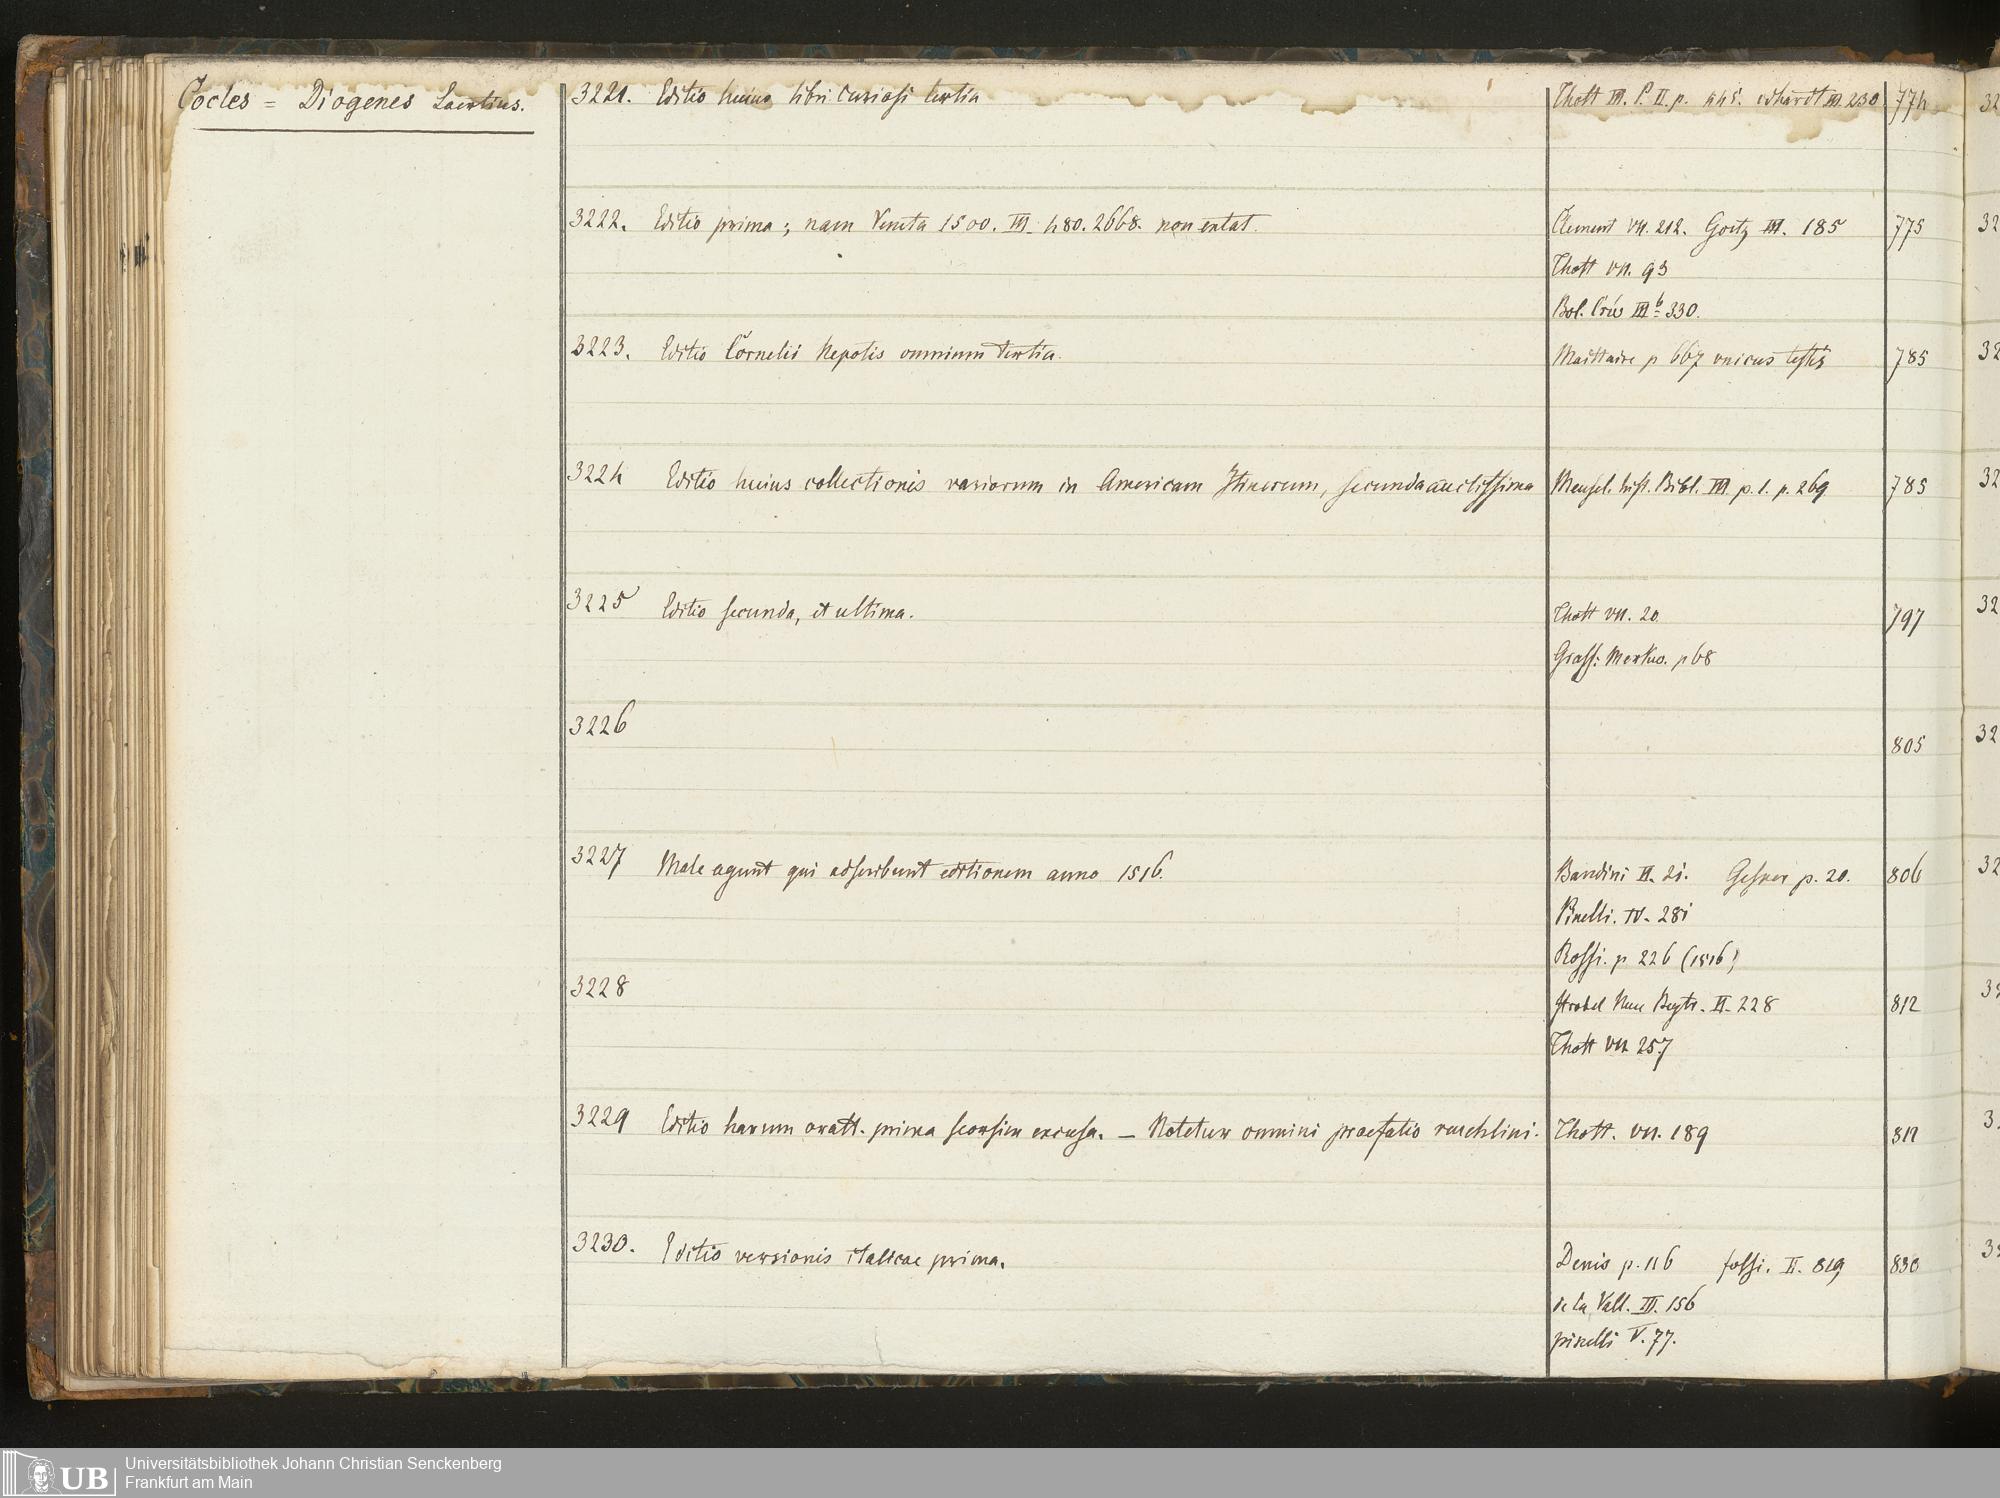 Cocles = Diogenes Laertius.
3221. Editio huius libri curiosi tertia
Thott III. P. II. p. 445. 230
774
3222. Editio prima; nam Veneta 1500. III. 480. 2668. non extat.
Clement VII. 212. Goetz III. 185
775
Thott VII. 93
Bol. III b 330.
3223. Editio Cornelii Nepotis omnium tertia.
Maittaire p 667 unicus testis
785
3224 Editio huius collectionis variorum in Americam Itinerum, secunda auctissima
Meusel. hist. Bibl. III p. 1. p. 269
785
3225 Editio secunda, et ultima.
Thott VII. 20
797
p 68
3226
805
3227 Male agunt qui adscribunt editionem anno 1516.
Bandini II. 21. Gesner p. 20.
806
Pinelli. IV. 281
Rossi. p 226 (1516)
3228
Strobel Neue Beytr. II. 228
812
Thott VII 257
3229 Editio harum oratt. prima seorsim excusa. – Notetur omnini praefatio reuchlini.
Thott. VII. 189
817
3230. Editio versionis italicae prima.
Denis p. 116 fossi. II. 819
830
de la Vall. III. 156
pinelli V. 77.
Universitätsbibliothek Johann Christian Senckenberg
Frankfurt am Main
UB